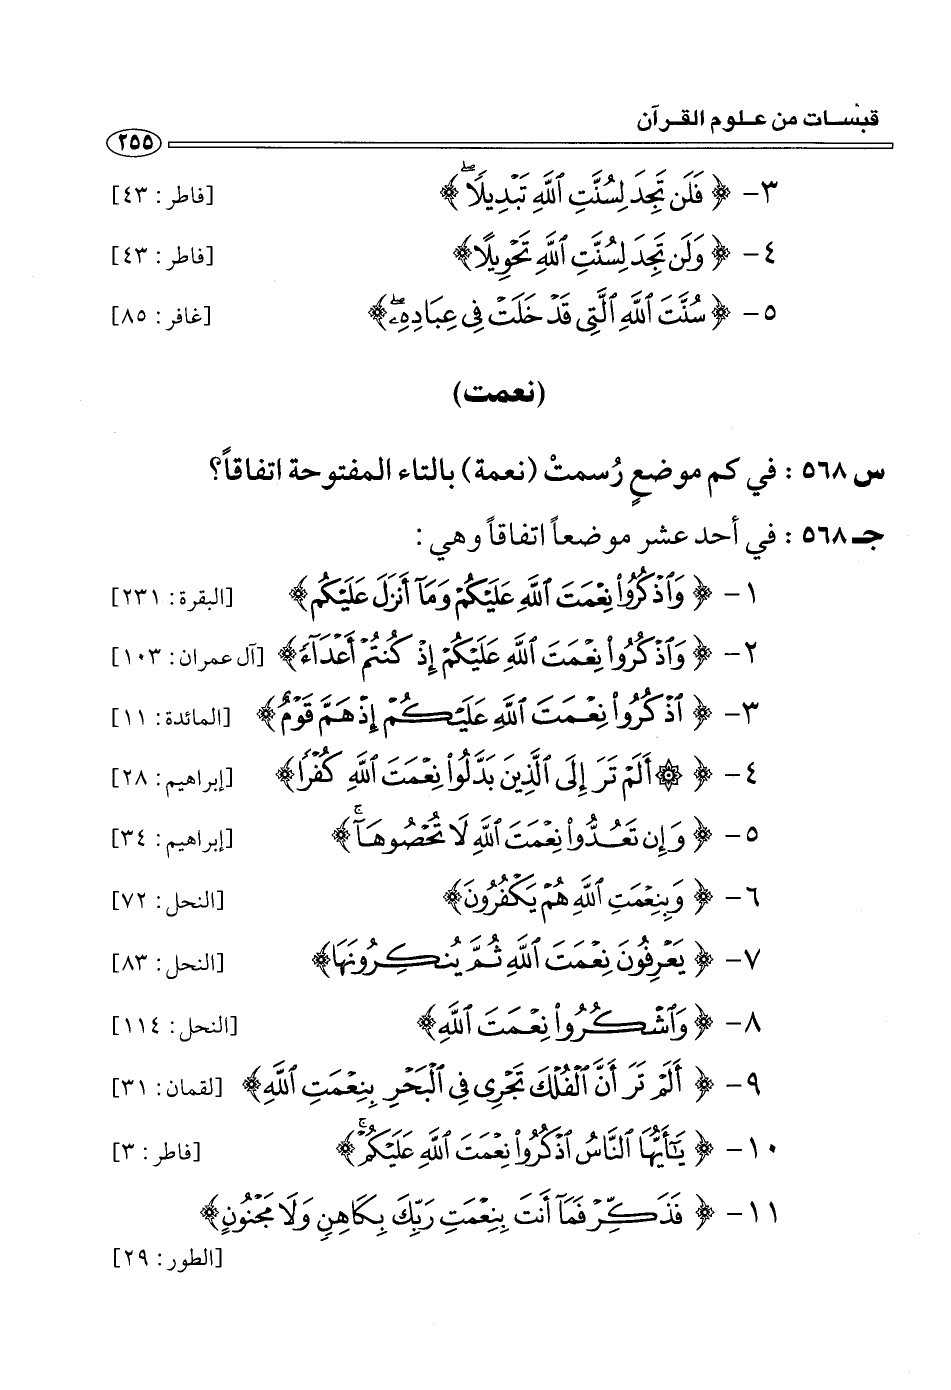 قبسات من علوم القرآن
٢٥٥
٣- ﴿ فَلَن تَجِدَ لِسُنَّتِ ٱللَّهِ تَبْدِيلًاۖ ﴾ [فاطر: ٤٣]
٤- ﴿ وَلَن تَجِدَ لِسُنَّتِ ٱللَّهِ تَحْوِيلًا ﴾ [فاطر: ٤٣]
٥- ﴿ سُنَّتَ ٱللَّهِ ٱلَّتِى قَدْ خَلَتْ فِى عِبَادِهِۦۖ ﴾ [غافر: ٨٥]
(نعمت)
س ٥٦٨ : في كم موضعٍ رُسمتْ (نعمة) بالتاء المفتوحة اتفاقاً؟
جـ ٥٦٨ : في أحد عشر موضعاً اتفاقاً وهي :
١- ﴿ وَٱذْكُرُوا۟ نِعْمَتَ ٱللَّهِ عَلَيْكُمْ وَمَآ أَنزَلَ عَلَيْكُم ﴾ [البقرة: ٢٣١]
٢- ﴿ وَٱذْكُرُوا۟ نِعْمَتَ ٱللَّهِ عَلَيْكُمْ إِذْ كُنتُمْ أَعْدَآءً ﴾ [آل عمران: ١٠٣]
٣- ﴿ ٱذْكُرُوا۟ نِعْمَتَ ٱللَّهِ عَلَيْكُمْ إِذْ هَمَّ قَوْمٌ ﴾ [المائدة: ١١]
٤- ﴿ ۞ أَلَمْ تَرَ إِلَى ٱلَّذِينَ بَدَّلُوا۟ نِعْمَتَ ٱللَّهِ كُفْرًا ﴾ [إبراهيم: ٢٨]
٥- ﴿ وَإِن تَعُدُّوا۟ نِعْمَتَ ٱللَّهِ لَا تُحْصُوهَآۗ ﴾ [إبراهيم: ٣٤]
٦- ﴿ وَبِنِعْمَتِ ٱللَّهِ هُمْ يَكْفُرُونَ ﴾ [النحل: ٧٢]
٧- ﴿ يَعْرِفُونَ نِعْمَتَ ٱللَّهِ ثُمَّ يُنكِرُونَهَا ﴾ [النحل: ٨٣]
٨- ﴿ وَٱشْكُرُوا۟ نِعْمَتَ ٱللَّهِ ﴾ [النحل: ١١٤]
٩- ﴿ أَلَمْ تَرَ أَنَّ ٱلْفُلْكَ تَجْرِى فِى ٱلْبَحْرِ بِنِعْمَتِ ٱللَّهِ ﴾ [لقمان: ٣١]
١٠- ﴿ يَٰٓأَيُّهَا ٱلنَّاسُ ٱذْكُرُوا۟ نِعْمَتَ ٱللَّهِ عَلَيْكُمْۚ ﴾ [فاطر: ٣]
١١- ﴿ فَذَكِّرْ فَمَآ أَنتَ بِنِعْمَتِ رَبِّكَ بِكَاهِنٍ وَلَا مَجْنُونٍ ﴾
[الطور: ٢٩]